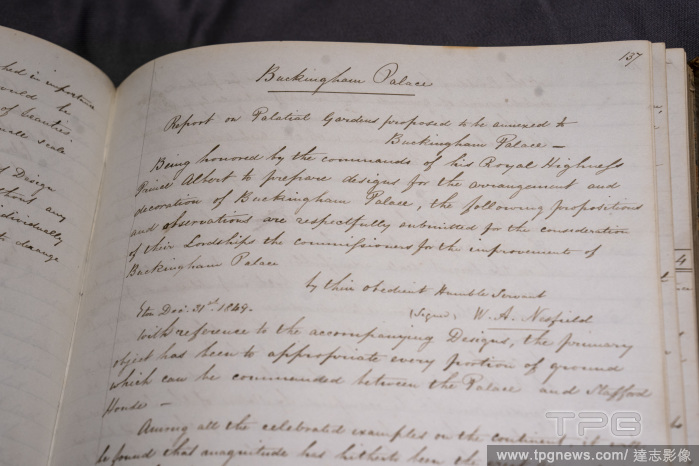 hed in
would be
of beauties
small scale
of Design
any
individually
to change
137
Buckingham Palace
Report on Palatial Gardens proposed to be annexed to
Buckingham Palace —
Being honored by the commands of his Royal Highness
Prince Albert to prepare designs for the arrangement and
decoration of Buckingham Palace, the following propositions
and observations are respectfully submitted for the consideration
of their Lordships the commissioners for the improvements of
Buckingham Palace
by their obedient Humble Servant
Dec. 31st 1849.
(Signed) W. A. Nesfield
With reference to the accompanying Designs, the primary
object has been to appropriate every portion of ground
which can be commanded between the Palace and Stafford
House —
Among all the celebrated examples on the continent it will
be found that magnitude has hitherto been the
4
TPG
www.tpgnews.com/達志影像